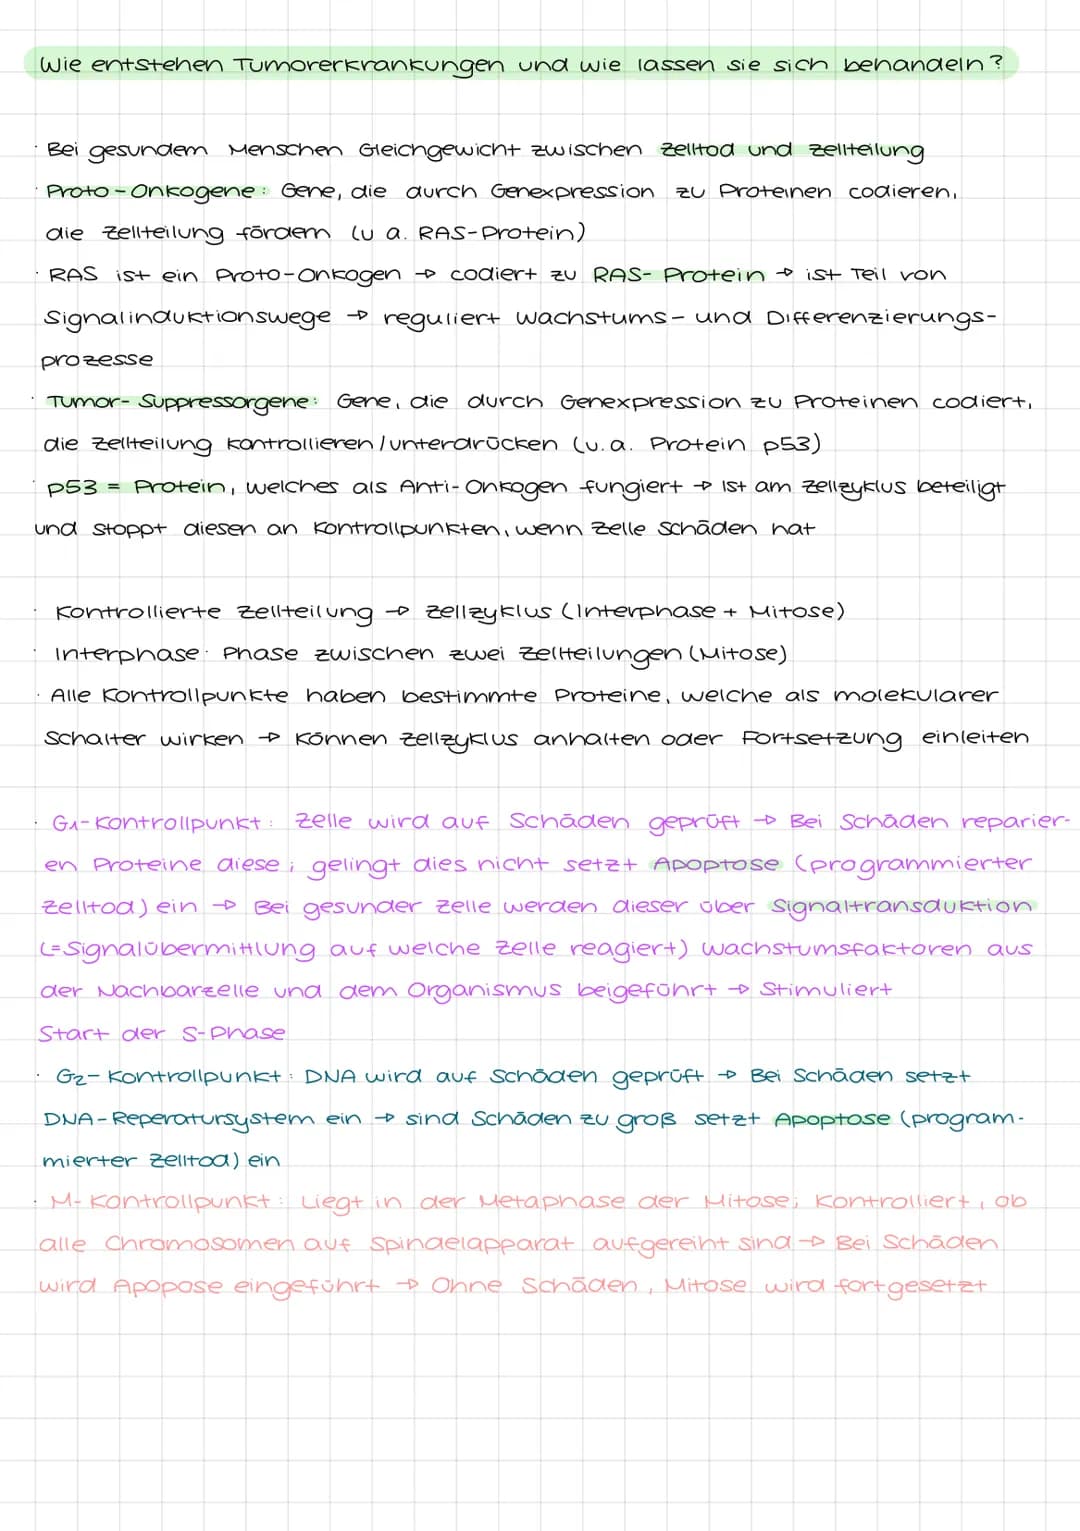 Wie entstehen Tumorerkrankungen und wie lassen sie sich behandeln?
· Bei gesundem Menschen Gleichgewicht zwischen Zelltod und Zellteilung
· Proto-Onkogene: Gene, die durch Genexpression zu Proteinen codieren,
die Zellteilung fördern (u a. RAS-Protein)
· RAS ist ein Proto-Onkogen → codiert zu RAS-Protein → ist Teil von
Signalinduktionswege → reguliert Wachstums- und Differenzierungs-
prozesse
· Tumor-Suppressorgene: Gene, die durch Genexpression zu Proteinen codiert,
die Zellteilung kontrollieren/unterdrücken (u.a. Protein p53)
· p53 = Protein, welches als Anti-Onkogen fungiert → Ist am Zellzyklus beteiligt
und stoppt diesen an Kontrollpunkten, wenn Zelle Schäden hat
· Kontrollierte Zellteilung → Zellzyklus (Interphase + Mitose)
· Interphase: Phase zwischen zwei Zellteilungen (Mitose)
· Alle Kontrollpunkte haben bestimmte Proteine, welche als molekularer
Schalter wirken → Können Zellzyklus anhalten oder Fortsetzung einleiten
· G1-Kontrollpunkt: Zelle wird auf Schäden geprüft → Bei Schäden reparier-
en Proteine diese; gelingt dies nicht setzt Apoptose (programmierter
Zelltod) ein → Bei gesunder Zelle werden dieser über Signaltransduktion
(=Signalübermittlung auf welche Zelle reagiert) Wachstumsfaktoren aus
der Nachbarzelle und dem Organismus beigeführt → Stimuliert
Start der S-Phase
· G2-Kontrollpunkt: DNA wird auf Schäden geprüft → Bei Schäden setzt
DNA-Reperatursystem ein → sind Schäden zu groß setzt Apoptose (program-
mierter Zelltod) ein
· M-Kontrollpunkt: Liegt in der Metaphase der Mitose; Kontrolliert, ob
alle Chromosomen auf Spindelapparat aufgereiht sind → Bei Schäden
wird Apopose eingeführt → Ohne Schäden, Mitose wird fortgesetzt